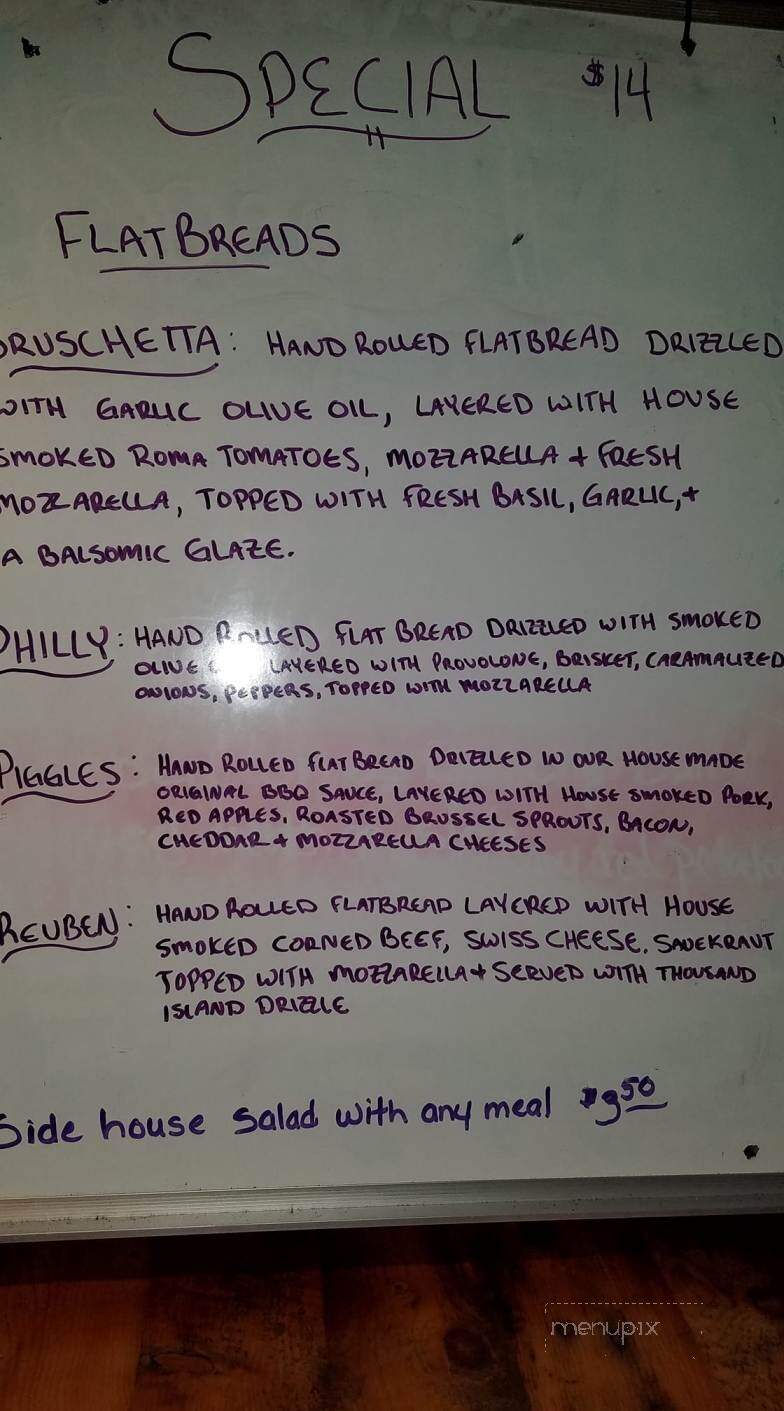 SPECIAL $14
FLATBREADS
BRUSCHETTA: HAND ROLLED FLATBREAD DRIZZLED
WITH GARLIC OLIVE OIL, LAYERED WITH HOUSE
SMOKED ROMA TOMATOES, MOZZARELLA + FRESH
MOZZARELLA, TOPPED WITH FRESH BASIL, GARLIC, +
A BALSOMIC GLAZE.
PHILLY: HAND ROLLED FLAT BREAD DRIZZLED WITH SMOKED
OLIVE LAYERED WITH PROVOLONE, BRISKET, CARAMALIZED
ONIONS, PEPPERS, TOPPED WITH MOZZARELLA
PIGGLES: HAND ROLLED FLAT BREAD DRIZZLED IN OUR HOUSEMADE
ORIGINAL BBQ SAUCE, LAYERED WITH HOUSE SMOKED PORK,
RED APPLES, ROASTED BRUSSEL SPROUTS, BACON,
CHEDDAR + MOZZARELLA CHEESES
REUBEN: HAND ROLLED FLATBREAD LAYERED WITH HOUSE
SMOKED CORNED BEEF, SWISS CHEESE, SAUEKRAUT
TOPPED WITH MOZZARELLA + SERVED WITH THOUSAND
ISLAND DRIZZLE
Side house salad with any meal $3.50
menupix